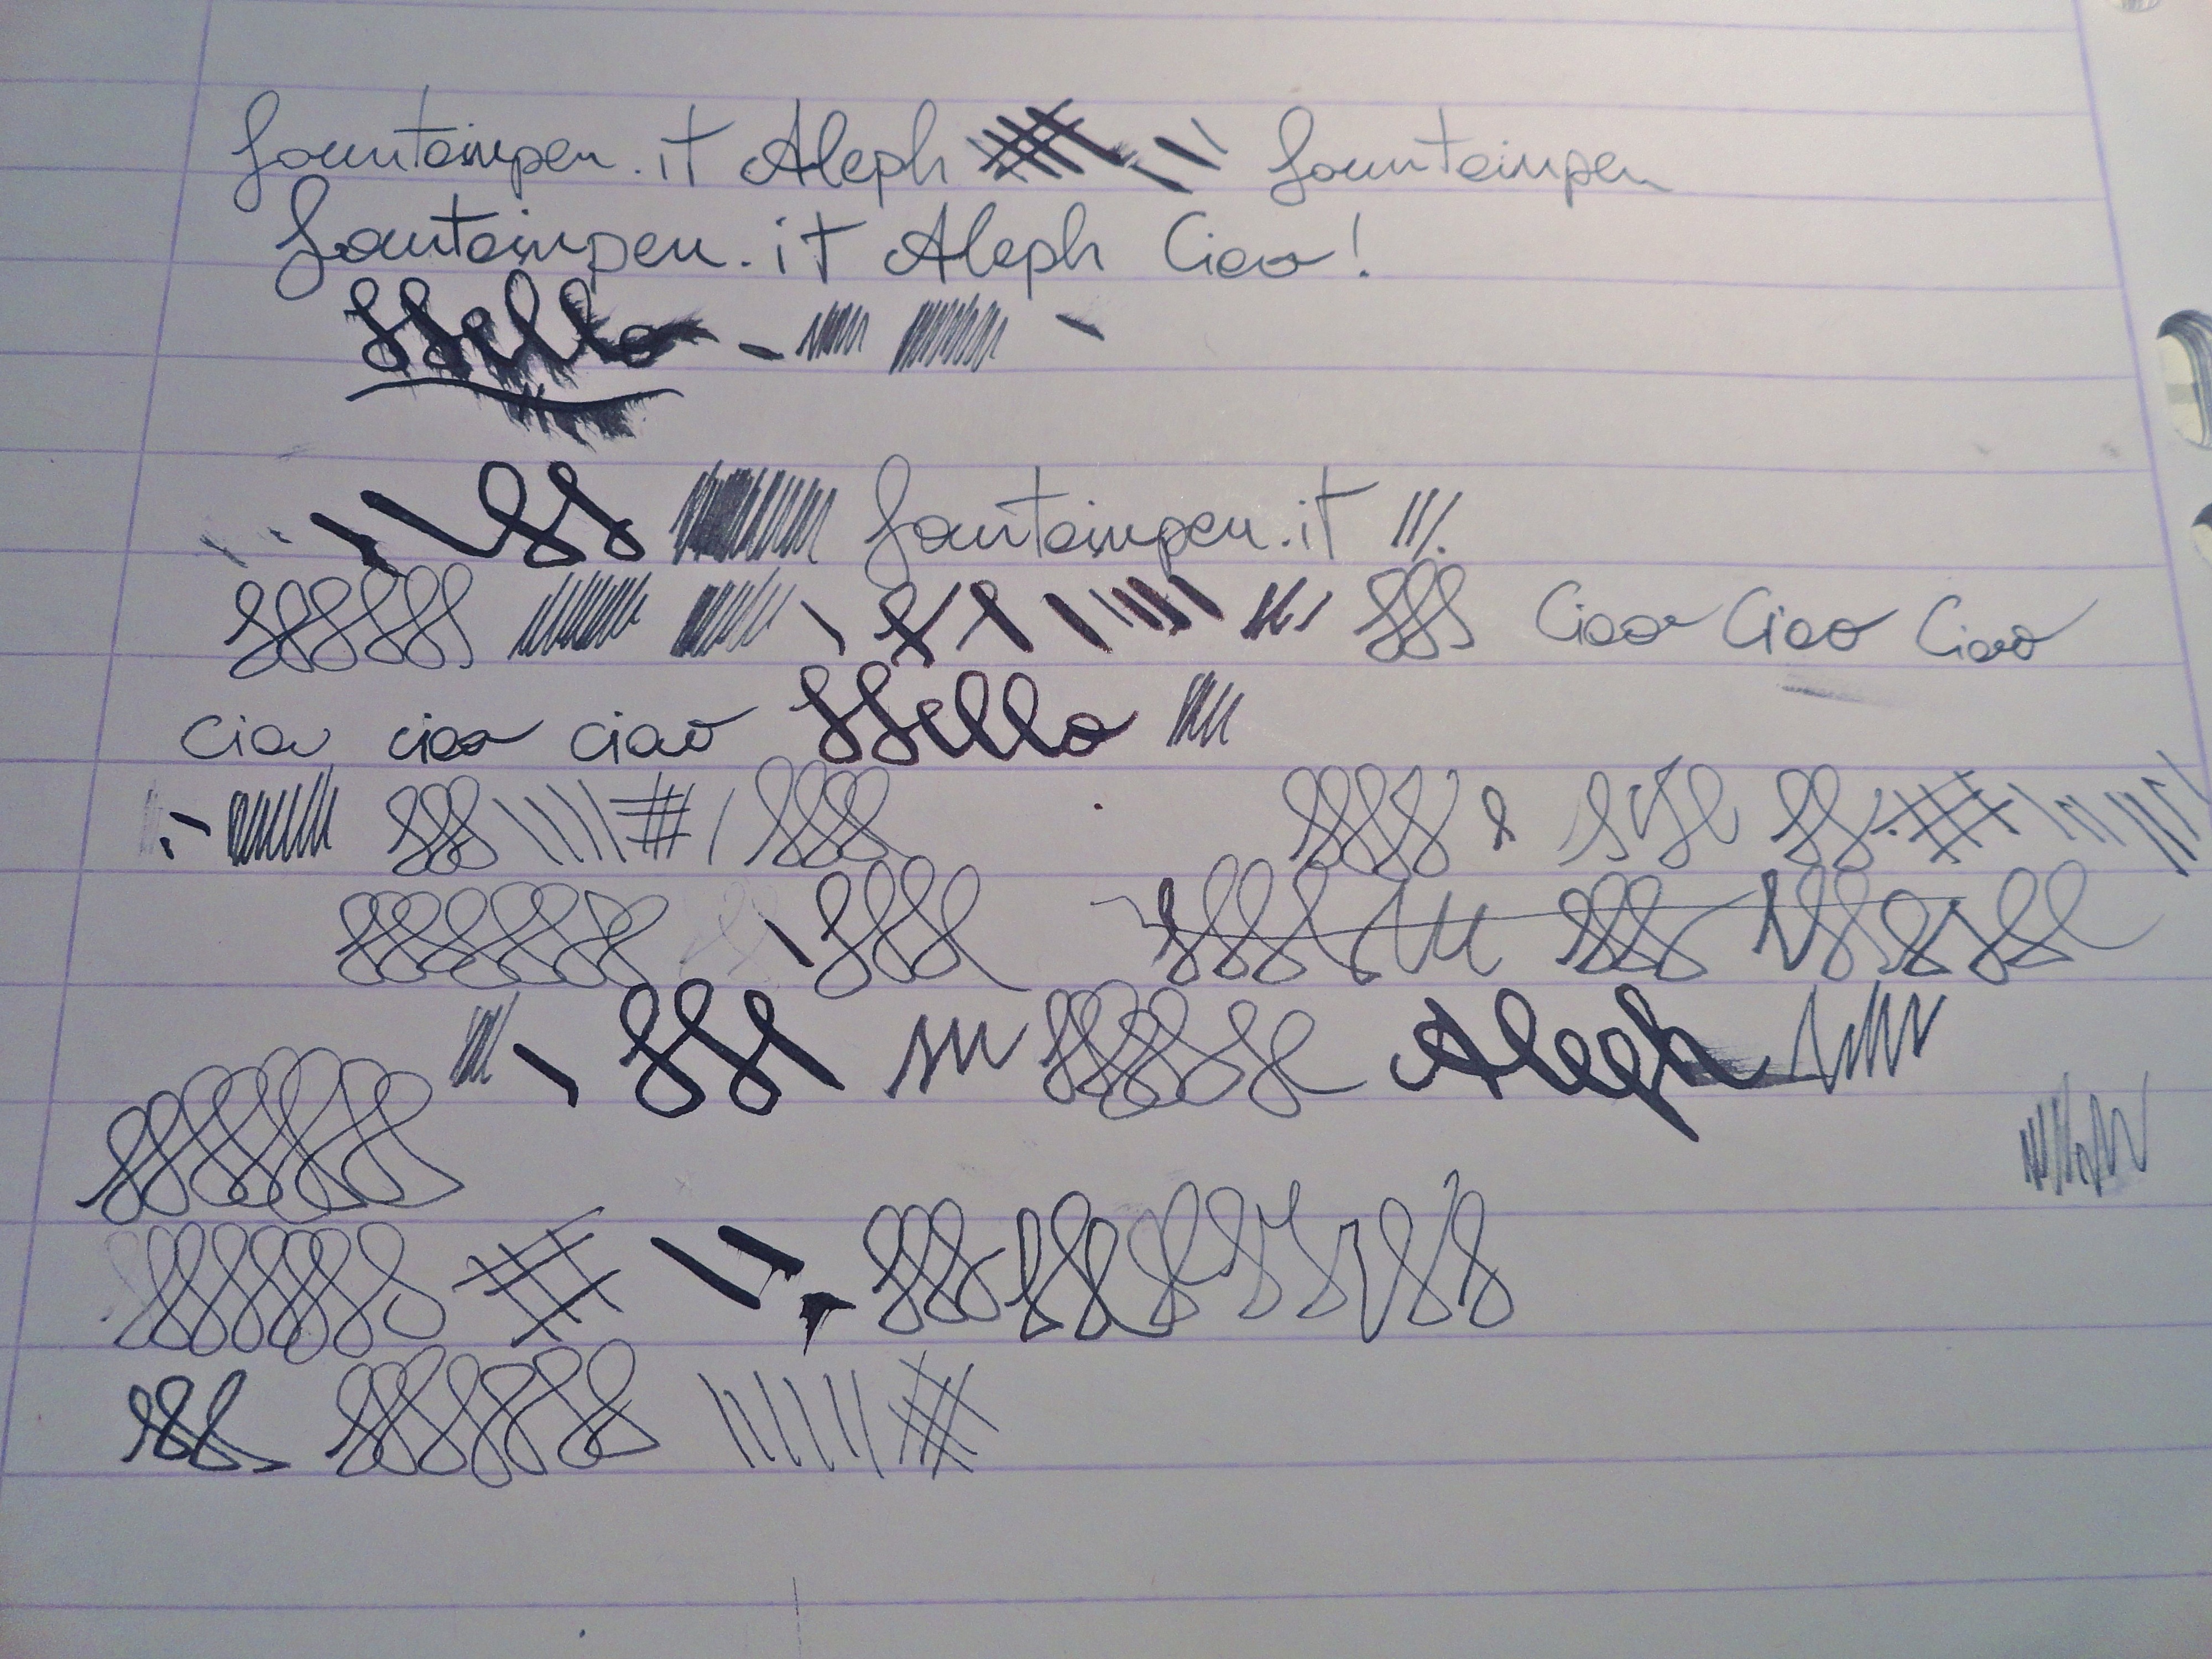 fountainpen.it Aleph fountainpen
fountainpen.it Aleph Ciao!
Hello
fountainpen.it
Ciao Ciao Ciao
ciao ciao ciao Hello
Aleph